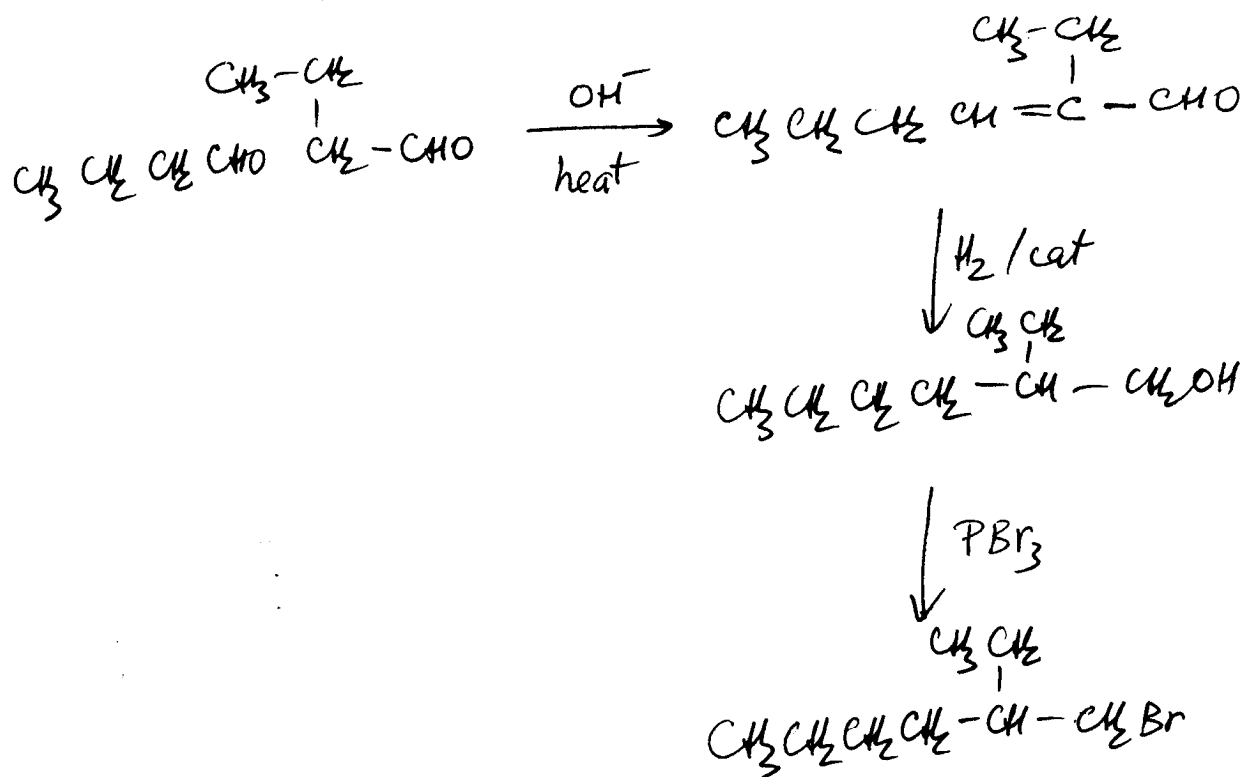 CH3-CH2
CH3 CH2 CH2 CHO CH2-CHO
OH-
heat
CH3-CH2
CH3 CH2 CH2 CH=C-CHO
H2/cat
CH3 CH2
CH3 CH2 CH2 CH2-CH-CH2OH
PBr3
CH3 CH2
CH3CH2CH2CH2-CH-CH2Br